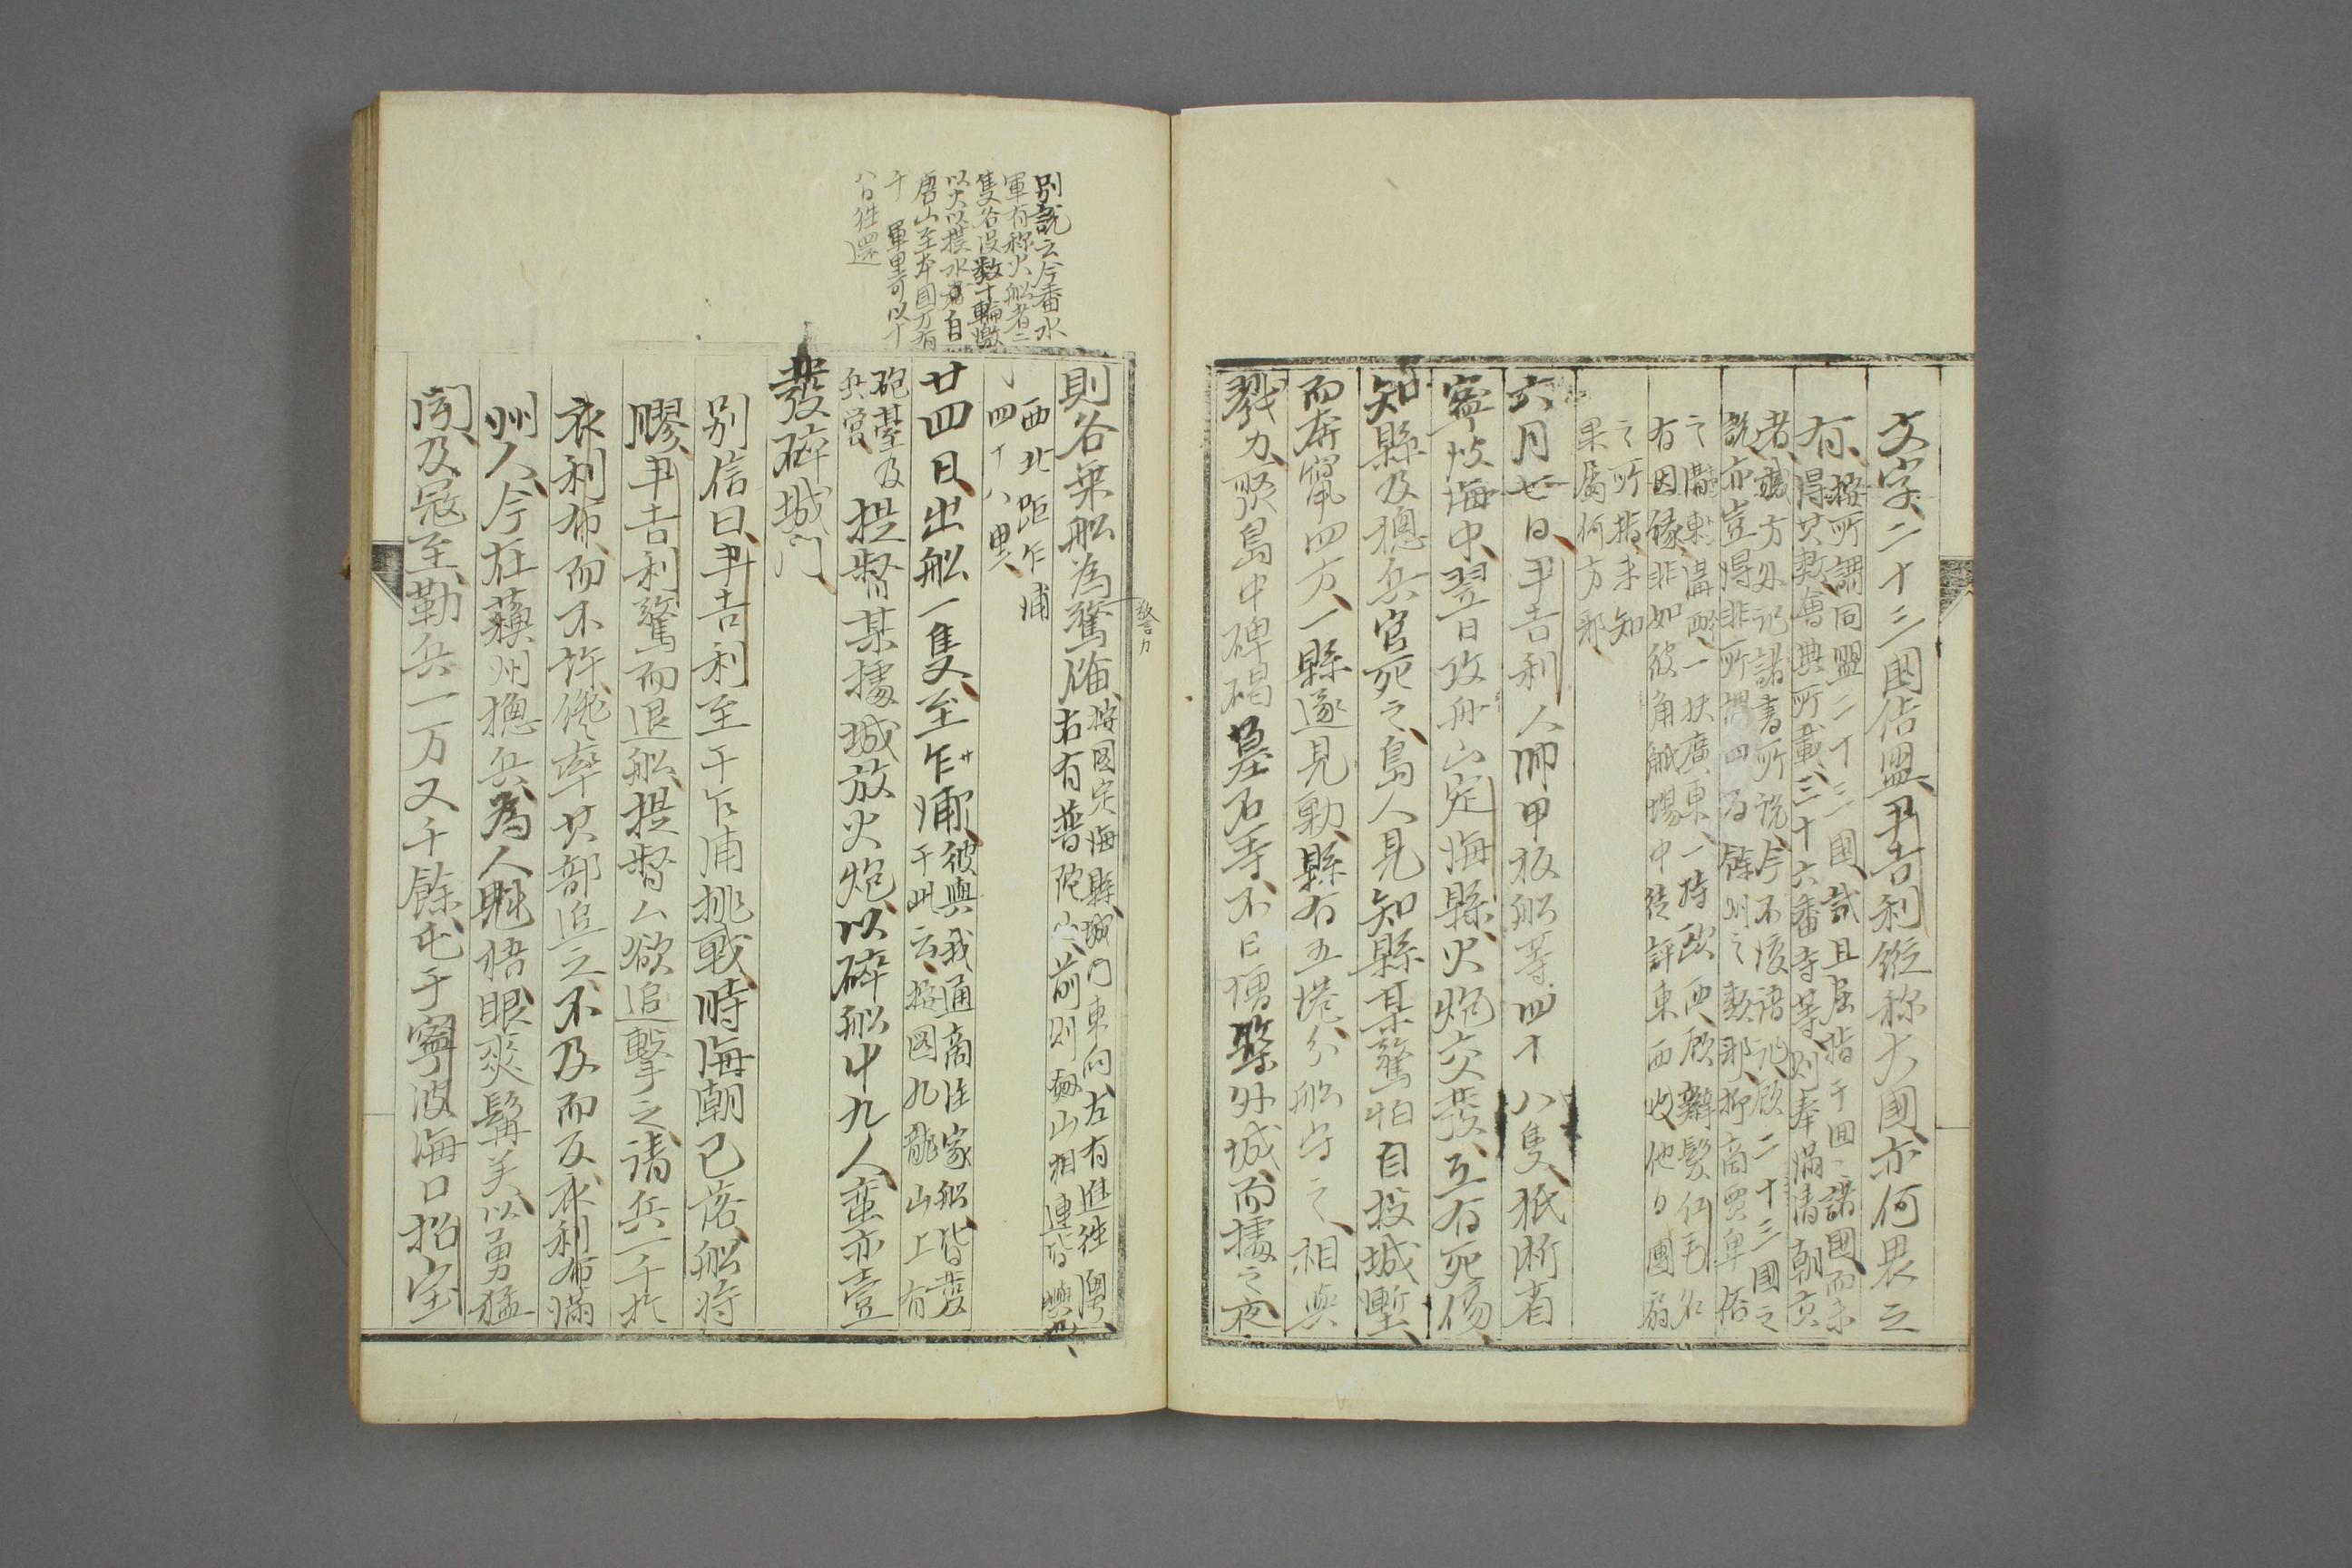 文字二十三國佸盟尹吉利縦称大國亦何畏之
有、按所謂同盟二十三國試且屈指于囬二諸國而未
得其数會典所載三十六番寺等則奉滿清朝京
者職方外記諸書所説今不復語北顧二十三國之
説亦豈得非所謂四百餘州之数那抑商買卑俗
有因縁非如彼角觝場中徒評東西收他日團扇
之所指未知
果属何方那
六月七日尹吉利人師甲板船等四十八隻抵浙省
寧波海中翌日攻舟山定海縣火炮交發互有死傷
知縣及摠兵官死之島人見知縣某驚怕自投城塹
而奔竄四方一縣遂見動縣有五港分船守之相與
戮力聚島中碑碣墓石等不日僧築外城而據之夜
則各乗船為驚備按圖定海縣城門東向左有進往澳
右有普陀山前則劔山相連皆澳也
西北距乍浦
四十八里
廿四日出船一隻至乍浦彼與我通商往家船皆發
于此云按圖九龍山上有
砲䑓及
兵営
提督某據城放火炮以碎船中九人蛮亦壹
發碎城門
別信曰尹吉利至于乍浦挑戦時海潮已落船将
膠尹吉利驚而退船提督厶欲追撃之請兵一千於
衣利布而不許僅率其部追之不及而反衣利布滿
州人今在蘓州摠兵為人魁梧眼爽髯美以勇猛
聞及冦至勒兵一万又千餘屯于寧波海口招宝
別説云今番水
軍有称火船者三
隻各設数十輪激
以火以撥水飛自
唐山至本國万有
千 軍里可以十
八日往還